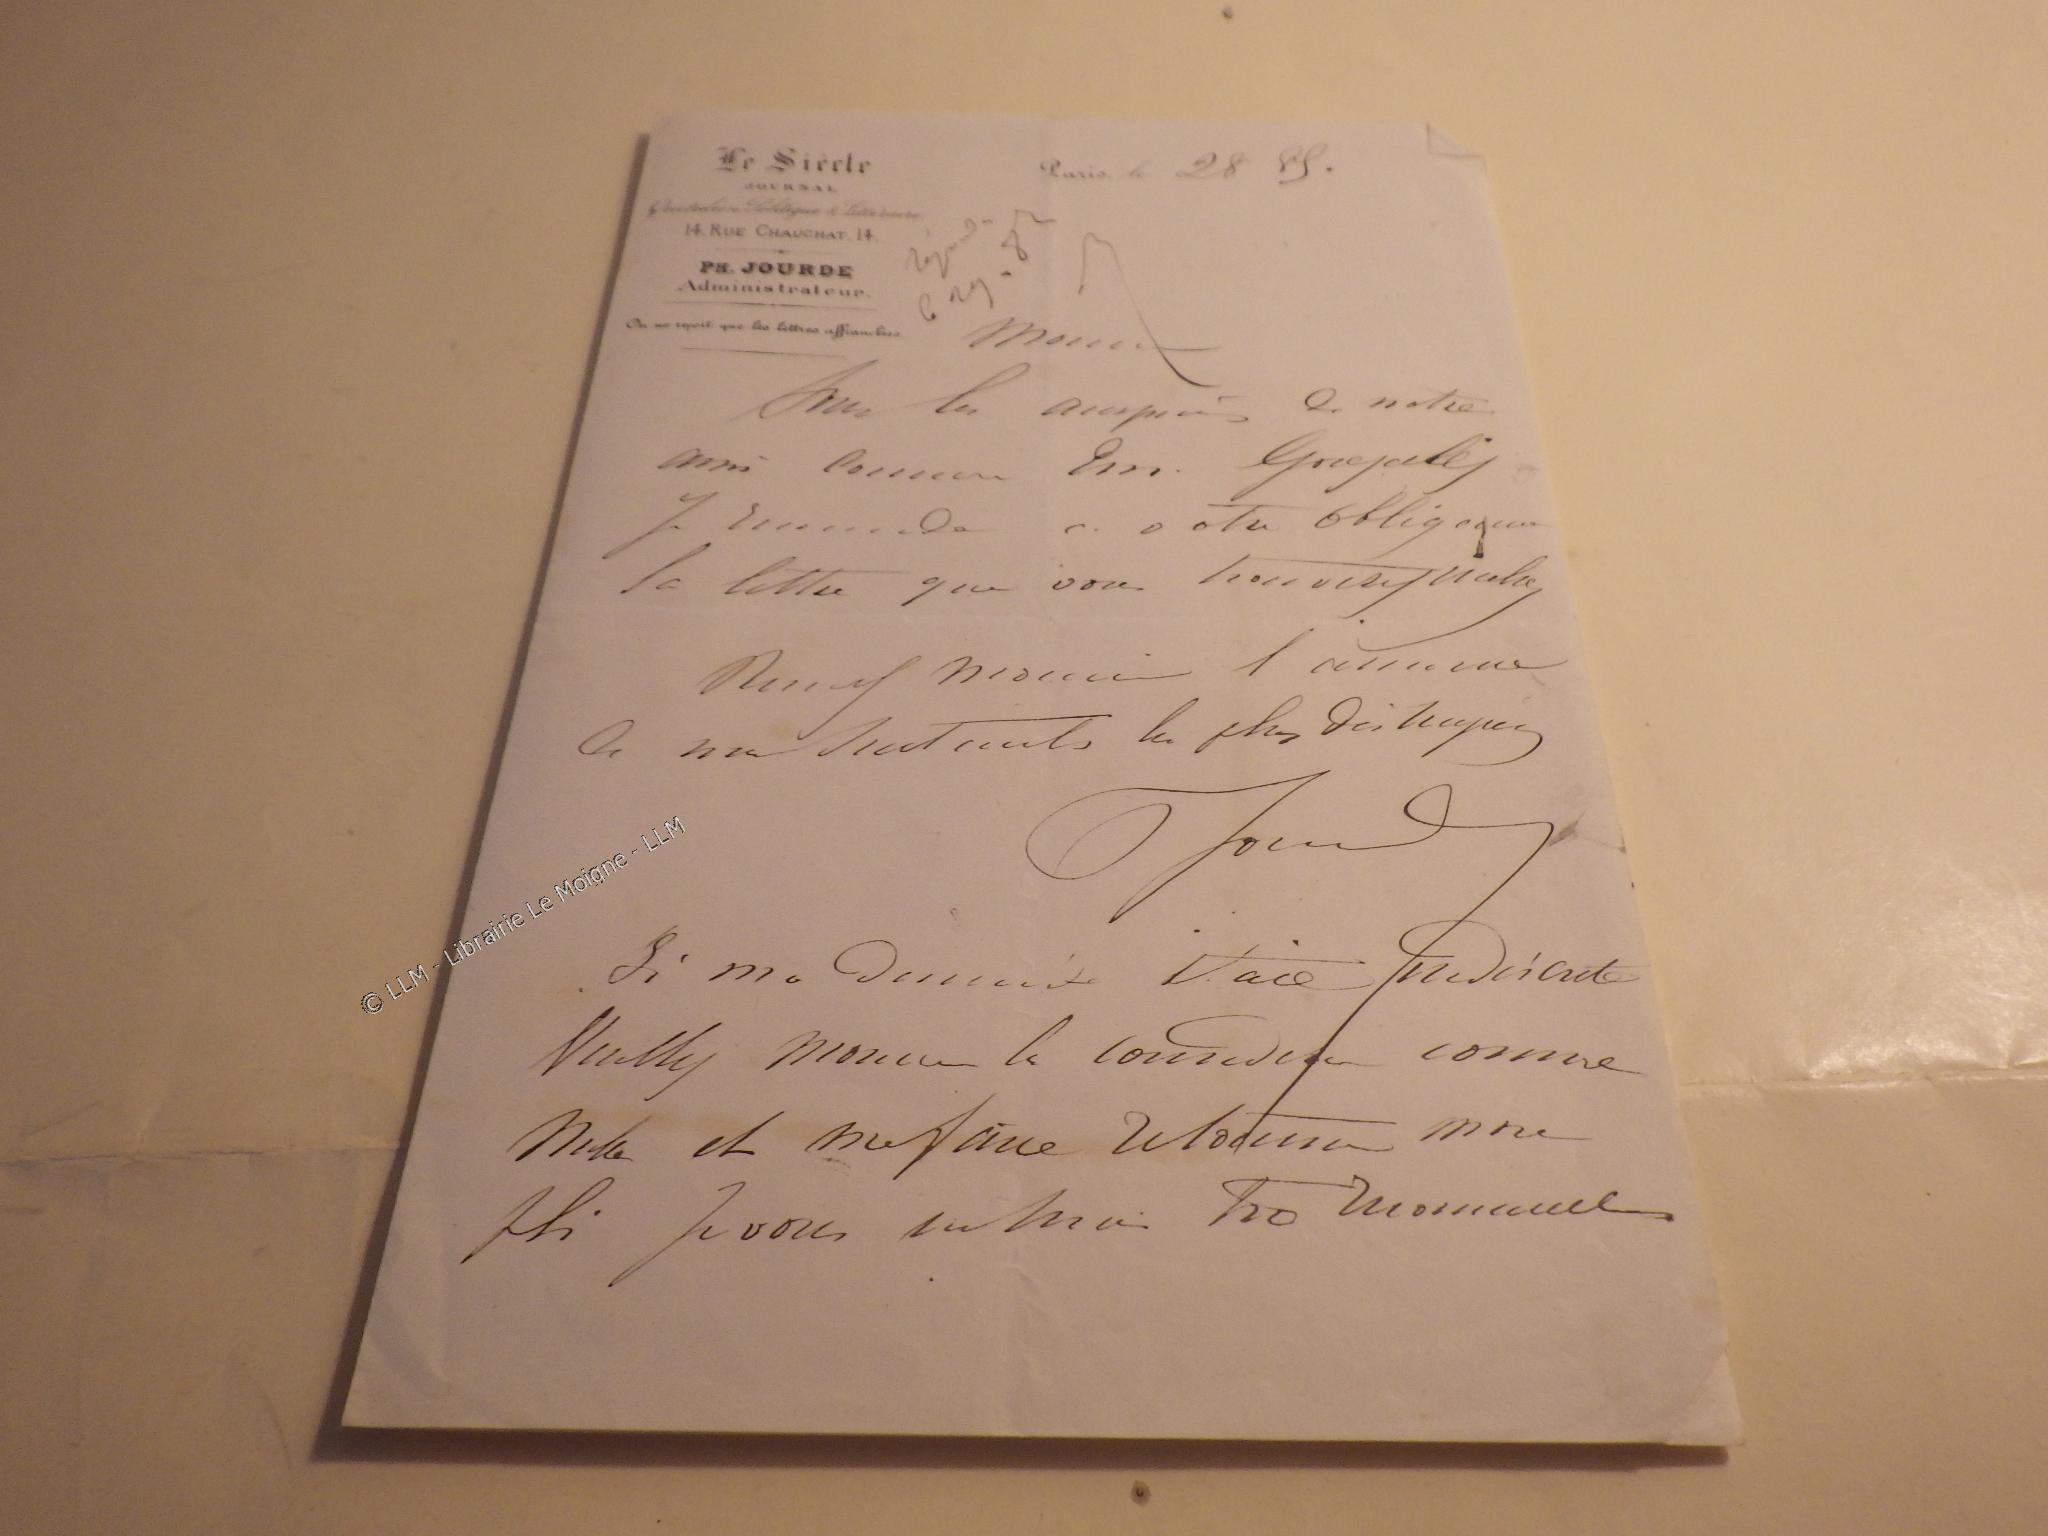 Le Siècle
JOURNAL
Quotidien, Politique & Littéraire
14. RUE CHAUCHAT. 14.
PH. JOURDE
Administrateur.
On ne reçoit que les lettres affranchies
Paris, le 28
Monsieur
Sous les auspices de notre
ami commun Em. Gonzalès
Je recommande a votre obligeance
la lettre que vous trouverez
Recevez Monsieur l'assurance
de mes sentiments les plus distingués
Jourde
Si ma demande était indiscrète
Veuillez Monsieur la considérer comme
nulle et me faire retourner mon
pli Je vous
© LLM - Librairie Le Moigne - LLM